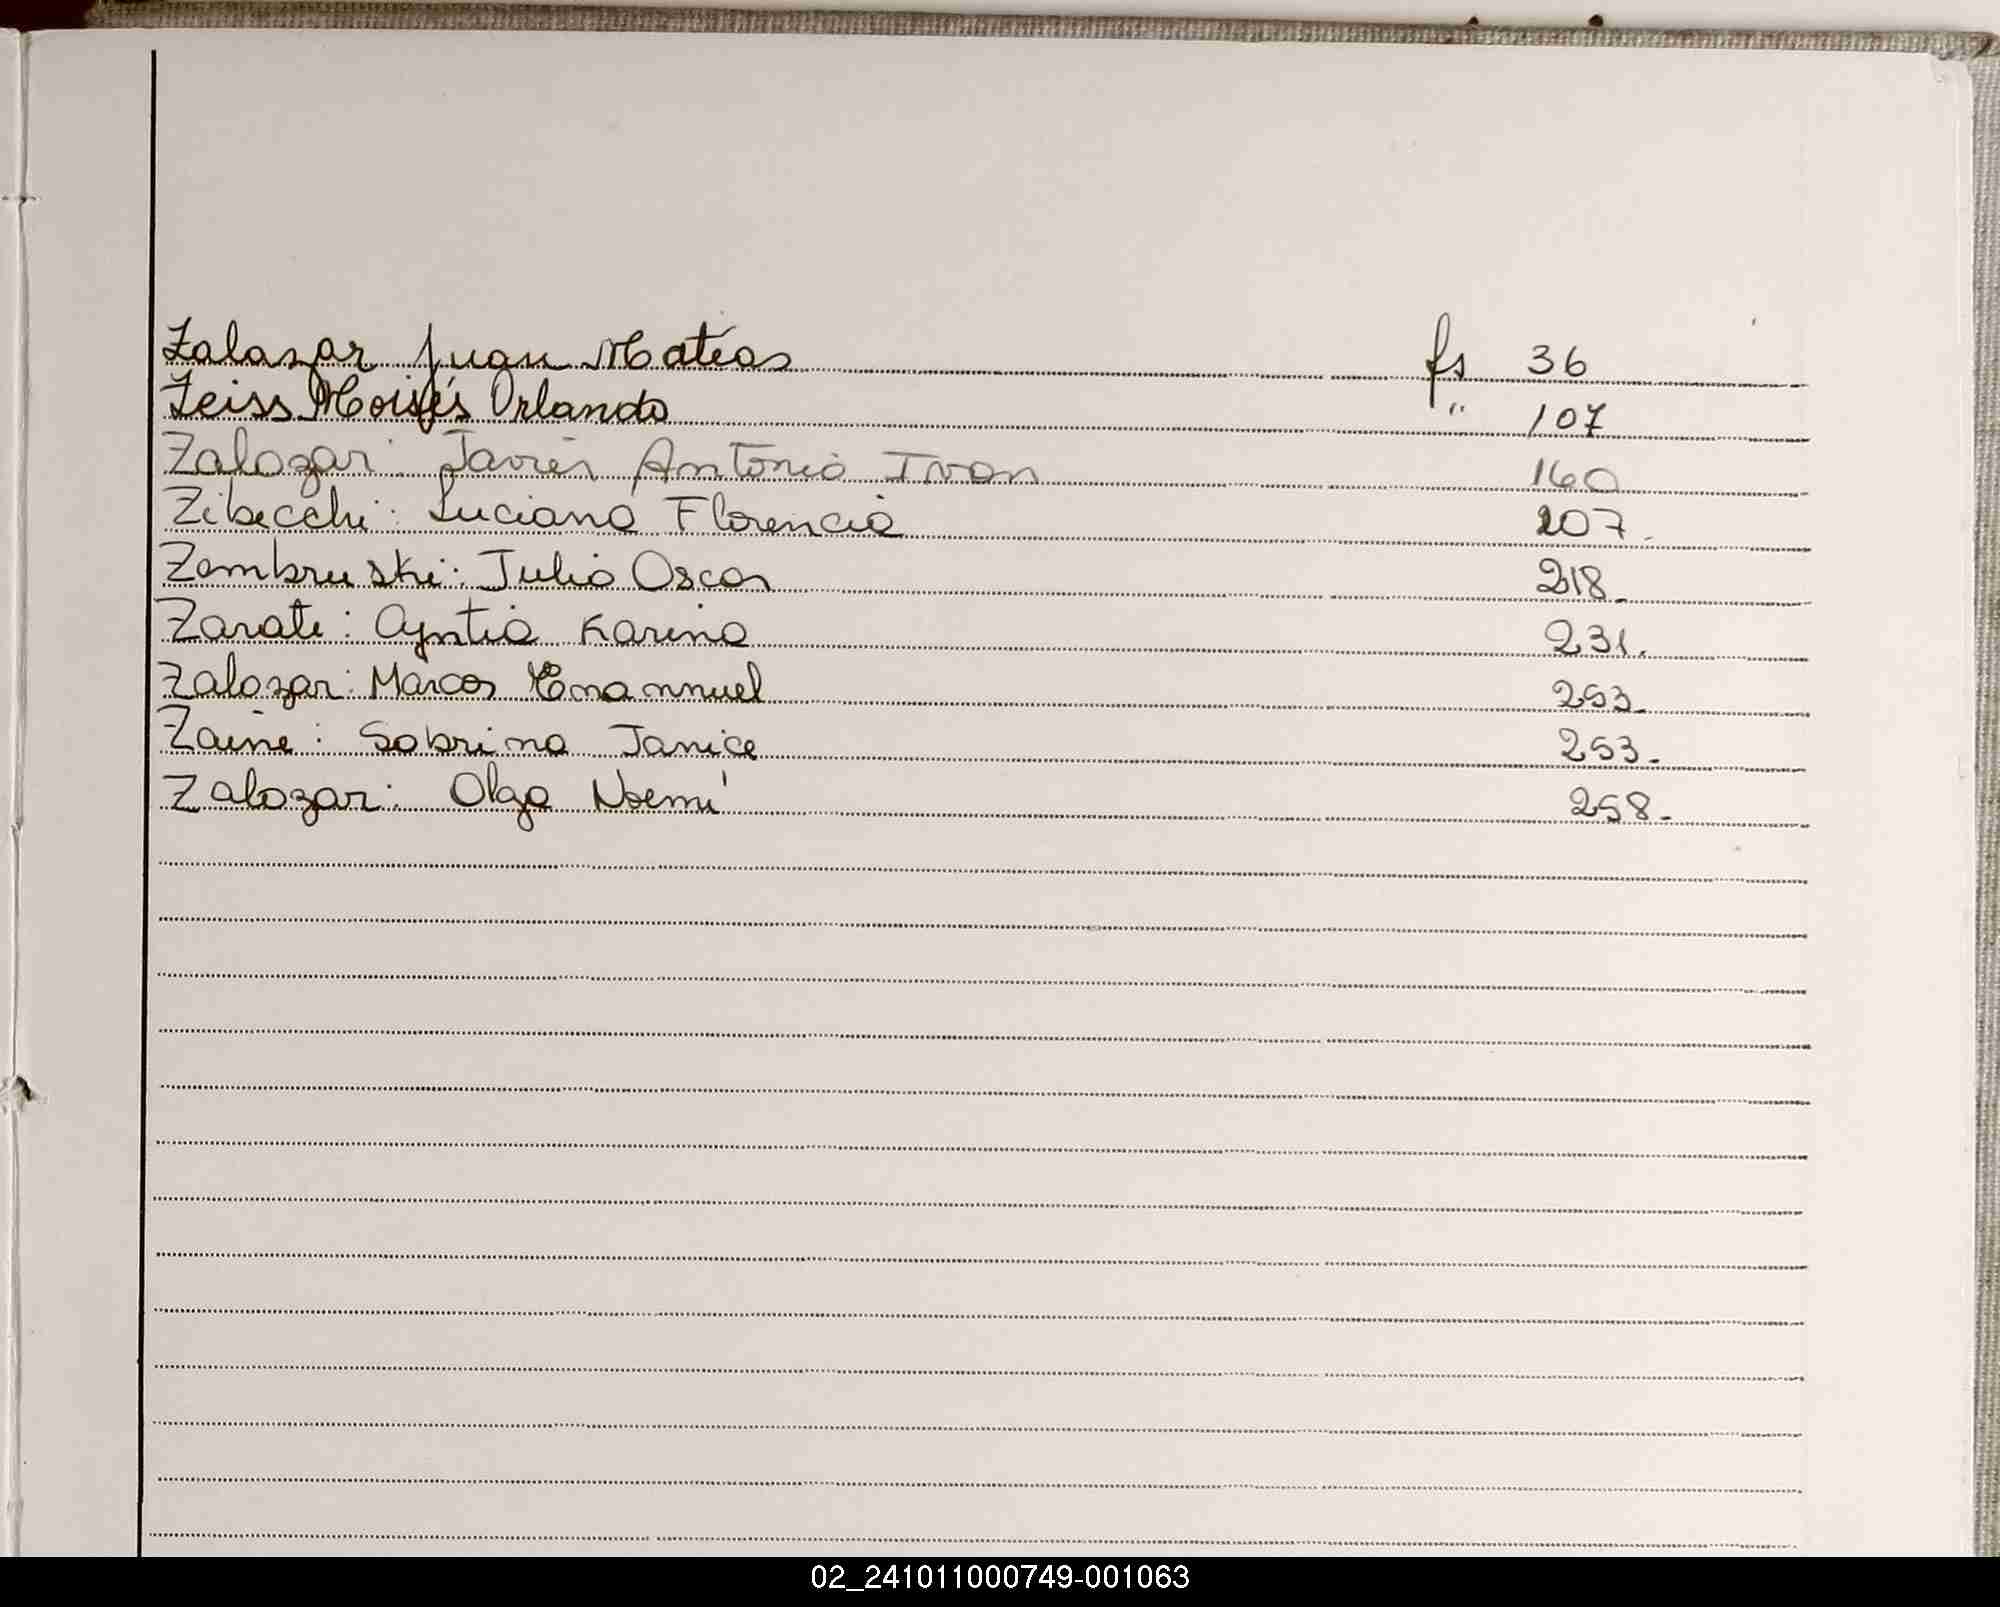 Zalazar Juan Mateos fs 36
Zeiss Moisés Orlando " 107
Zalazar: Javier Antonio Ivan 160
Zibecchi: Luciana Florencia 207.
Zembruski: Julio Oscar 218.
Zarate: Cyntia Karina 231.
Zalazar: Marcos Emannuel 253.
Zaine: Sabrina Janice 253.
Zalazar: Olga Noemí 258.
02_241011000749-001063